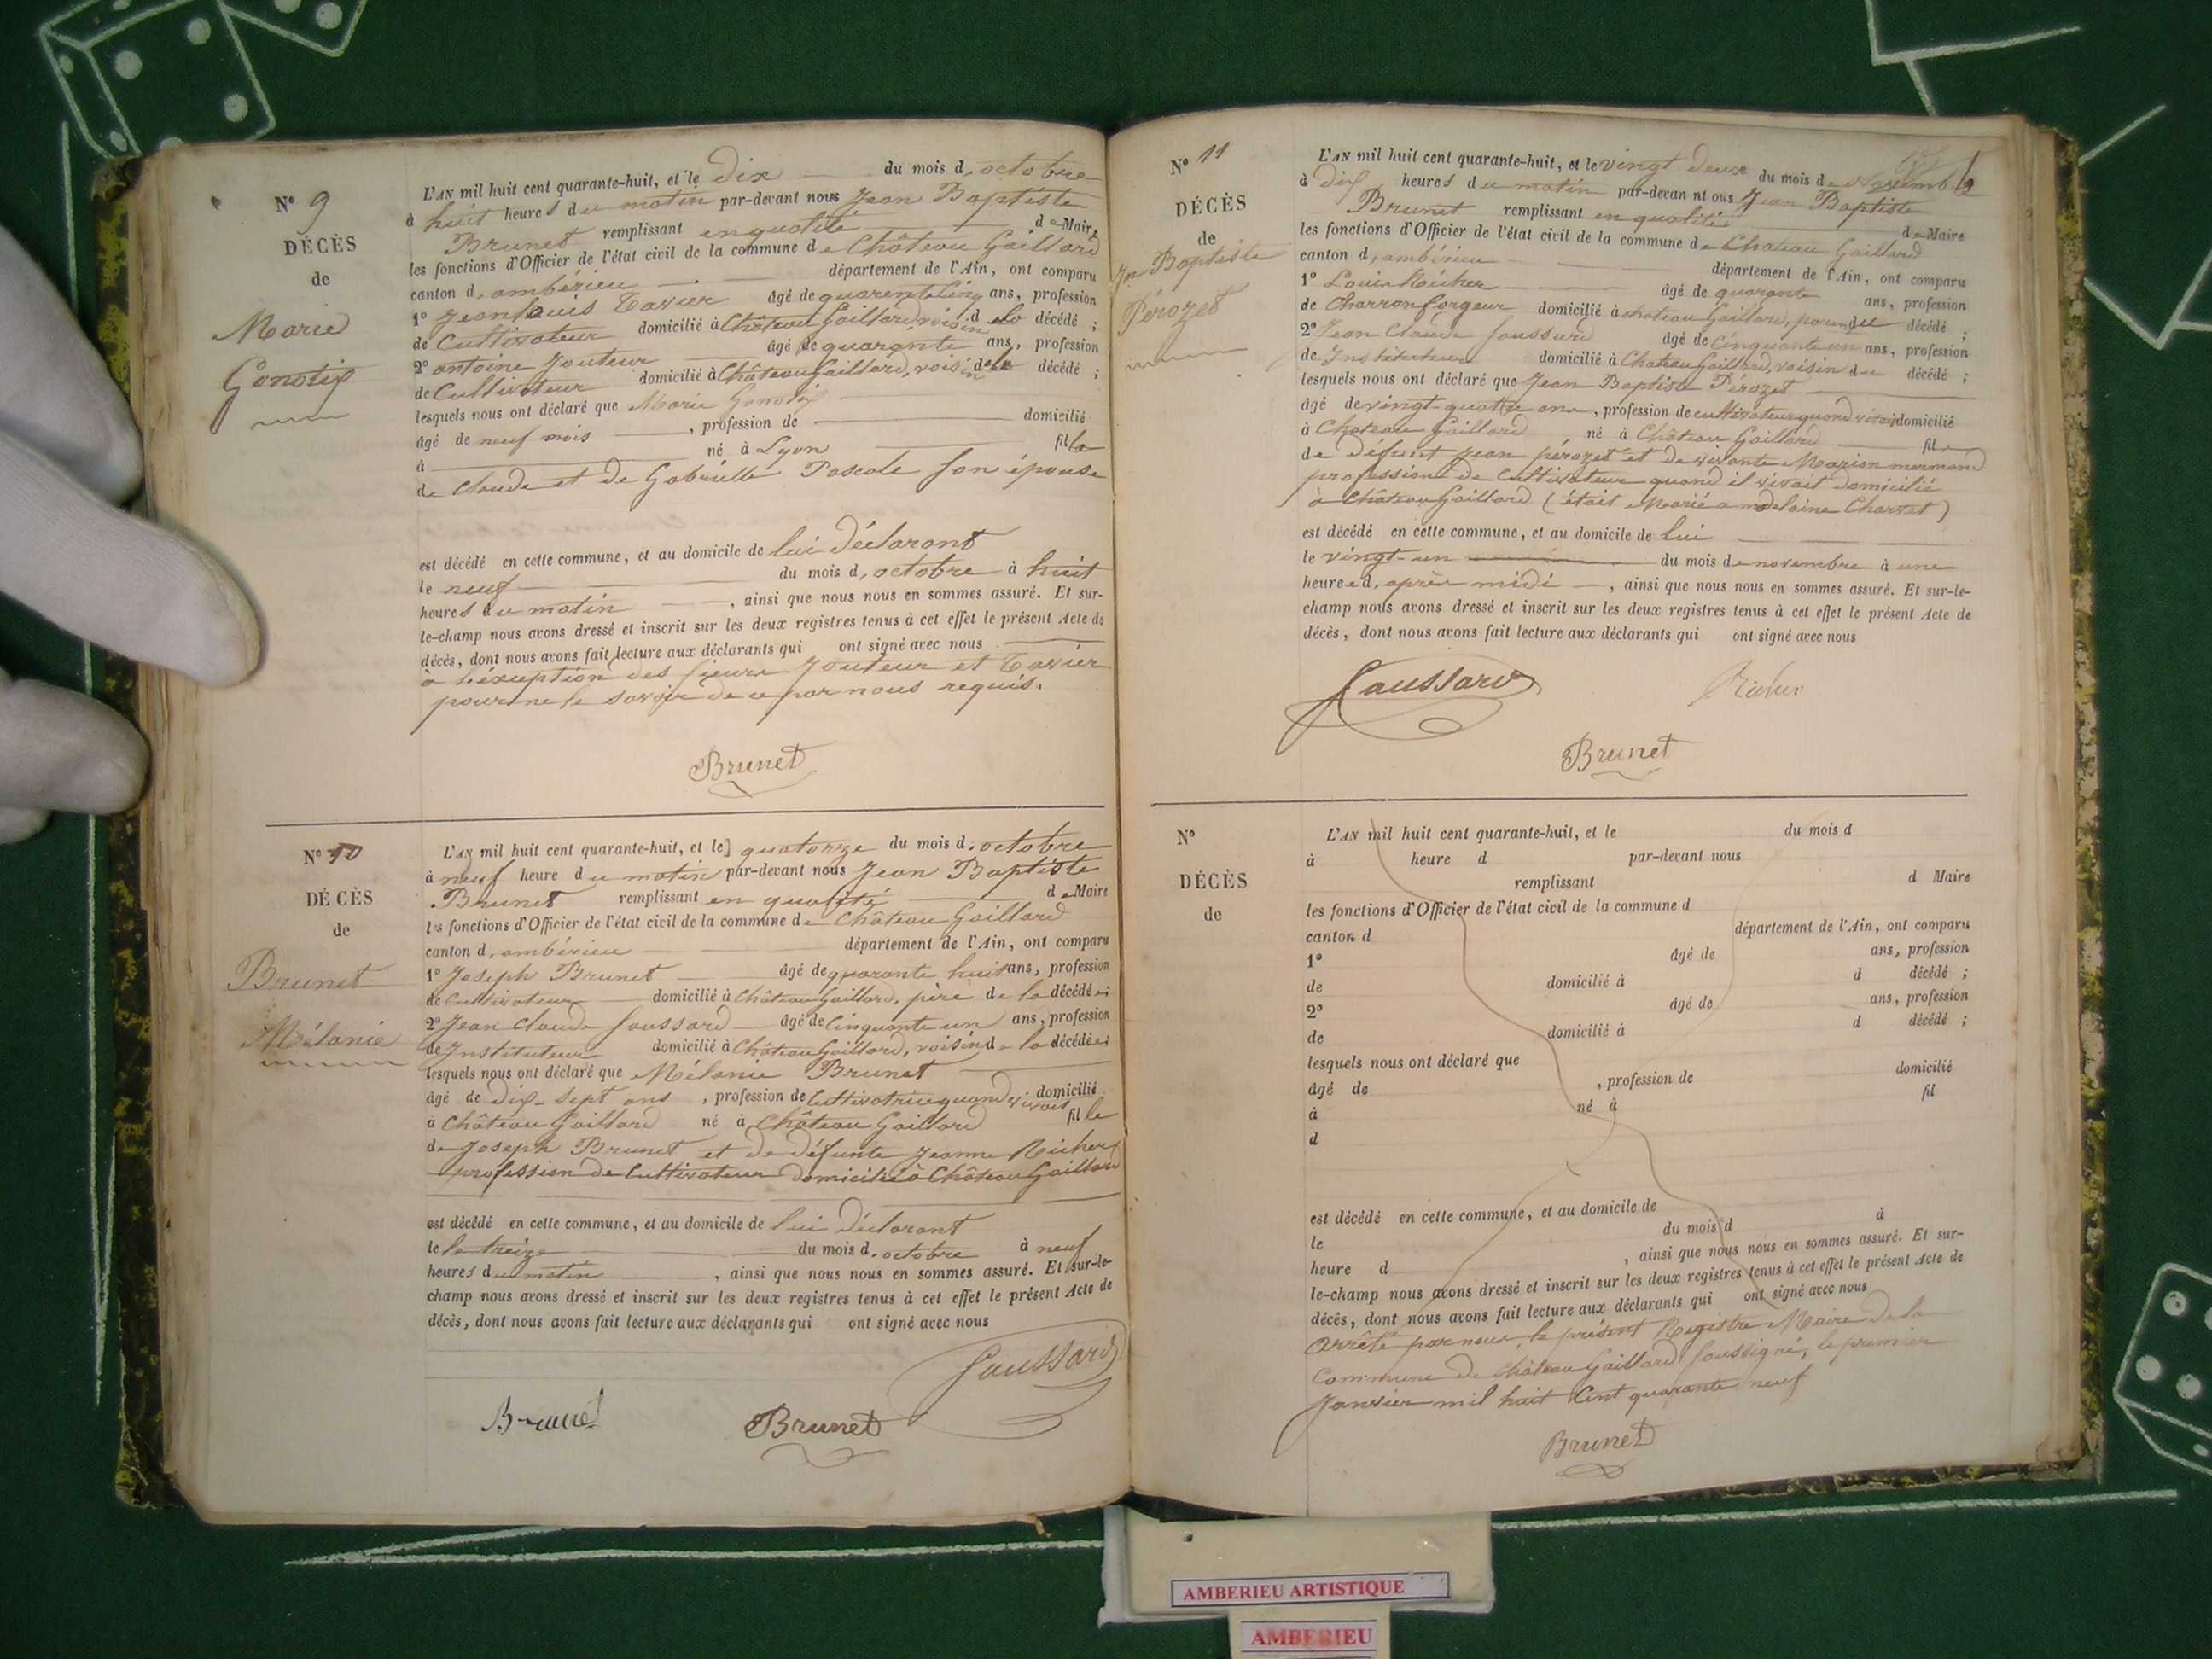 N° 9
DÉCÈS
de
Marie
Gonotip
L'AN mil huit cent quarante-huit, et le dix du mois d'octobre
à huit heures du matin par-devant nous Jean Baptiste
Brunet remplissant en qualité de Maire
les fonctions d'Officier de l'état civil de la commune de Château Gaillard
canton d'ambérieu département de l'Ain, ont comparu
1° Jean Louis Tavier âgé de quarente cinq ans, profession
de Cultivateur domicilié à Château Gaillard, voisin de la décédé ;
2° antoine Jouteur âgé de quarante ans, profession
de Cultivateur domicilié à Château Gaillard, voisin de la décédé ;
lesquels nous ont déclaré que Marie Gonotip
âgé de neuf mois , profession de domicilié
à né à Lyon fille
de Claude et de Gabrielle Pascale son épouse
est décédé en cette commune, et au domicile de lui déclarant
le neuf du mois d'octobre à huit
heures du matin , ainsi que nous nous en sommes assuré. Et sur-
le-champ nous avons dressé et inscrit sur les deux registres tenus à cet effet le présent Acte de
décès, dont nous avons fait lecture aux déclarants qui ont signé avec nous
à l'exception des sieurs Jouteur et Tavier
pour ne le savoir de ce par nous requis.
Brunet
N° 10
DÉCÈS
de
Brunet
Mélanie
L'AN mil huit cent quarante-huit, et le quatorze du mois d'octobre
à neuf heure du matin par-devant nous Jean Baptiste
Brunet remplissant en qualité de Maire
les fonctions d'Officier de l'état civil de la commune de Château Gaillard
canton d'ambérieu département de l'Ain, ont comparu
1° Joseph Brunet âgé de quarante huit ans, profession
de Cultivateur domicilié à Château Gaillard, père de la décédée ;
2° Jean Claude Saussard âgé de Cinquante un ans, profession
de Instituteur domicilié à Château Gaillard, voisin de la décédée ;
lesquels nous ont déclaré que Mélanie Brunet
âgé de dix-sept ans , profession de Cultivatrice quand vivait domicilié
à Château Gaillard né à Château Gaillard fille
de Joseph Brunet et de défunte Jeanne Richer
profession de Cultivateur domicilié à Château Gaillard
est décédé en cette commune, et au domicile de lui déclarant
le le treize du mois d'octobre à neuf
heures du matin , ainsi que nous nous en sommes assuré. Et sur-le-
champ nous avons dressé et inscrit sur les deux registres tenus à cet effet le présent Acte de
décès, dont nous avons fait lecture aux déclarants qui ont signé avec nous
Saussard
Brunet Brunet
N° 11
DÉCÈS
de
Jn Baptiste
Pérozet
L'AN mil huit cent quarante-huit, et le vingt deux du mois de novembre
à dix heures du matin par-devan nt ous Jean Baptiste
Brunet remplissant en qualité de Maire
les fonctions d'Officier de l'état civil de la commune de Chateau Gaillard
canton d'ambérieu département de l'Ain, ont comparu
1° Louis Richer âgé de quarante ans, profession
de Charron forgeur domicilié à chateau Gaillard, du décédé ;
2° Jean Claude Saussard âgé de Cinquante un ans, profession
de Instituteur domicilié à Chateau Gaillard, voisin du décédé ;
lesquels nous ont déclaré que Jean Baptiste Pérozet
âgé de vingt-quatre ans , profession de cultivateur quand vivait domicilié
à Chateau Gaillard né à Château Gaillard fils
de défunt Jean pérozet et de vivante Marion mermand
profession de Cultivateur quand il vivait domicilié
à Château Gaillard (était Marié a madelaine Charvet)
est décédé en cette commune, et au domicile de lui
le vingt-un du mois de novembre à une
heure d'après midi , ainsi que nous nous en sommes assuré. Et sur-le-
champ nous avons dressé et inscrit sur les deux registres tenus à cet effet le présent Acte de
décès, dont nous avons fait lecture aux déclarants qui ont signé avec nous
Saussard Richer
Brunet
N°
DÉCÈS
de
L'AN mil huit cent quarante-huit, et le du mois d
à heure d par-devant nous
remplissant d Maire
les fonctions d'Officier de l'état civil de la commune d
canton d département de l'Ain, ont comparu
1° âgé de ans, profession
de domicilié à d décédé ;
2° âgé de ans, profession
de domicilié à d décédé ;
lesquels nous ont déclaré que
âgé de , profession de domicilié
à né à fil
d
est décédé en cette commune, et au domicile de
le du mois d à
heure d , ainsi que nous nous en sommes assuré. Et sur-
le-champ nous avons dressé et inscrit sur les deux registres tenus à cet effet le présent Acte de
décès, dont nous avons fait lecture aux déclarants qui ont signé avec nous
Arrêté par nous, le présent Registre Maire de la
Commune de Château Gaillard soussigné, le premier
Janvier mil huit Cent quarante neuf
Brunet
AMBERIEU ARTISTIQUE
AMBERIEU